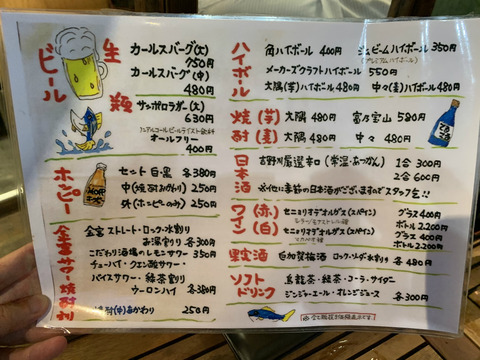 ビール
生
カールスバーグ(大)
750円
カールスバーグ(中)
480円
瓶
サッポロラガー(大)
630円
ノンアルコールビールテイスト飲料
オールフリー
400円
ホッピー
セット 白・黒 各380円
中(焼酎おかわり) 250円
外(ホッピーのみ) 250円
金宮サワー・焼酎割
金宮 ストレート・ロック・水割り
お湯割り 各300円
こだわり酒場のレモンサワー 350円
チューハイ・クエン酸サワー・
バイスサワー・緑茶割り
ウーロンハイ 各380円
焼酎(中)おかわり 250円
ハイボール
角ハイボール 400円
ジムビームハイボール 350円
メーカーズクラフトハイボール 550円
大隅(芋)ハイボール 480円
中々(麦)ハイボール 480円
焼酎
(芋) 大隅 480円 富乃宝山 580円
(麦) 大隅 480円 中々 480円
日本酒
吉野川厳選辛口(常温・あつかん) 1合 300円
2合 600円
※他にも季節の日本酒がございますのでスタッフ迄!!
ワイン
(赤) セニョリオデオルガス(スペイン) グラス 400円
ボトル 2.200円
(白) セニョリオデオルガス(スペイン) グラス 400円
ボトル 2.200円
果実酒
白加賀梅酒 ロック・ソーダ・水割り 各480円
ソフトドリンク
烏龍茶・緑茶・コーラ・サイダー
ジンジャーエール・オレンジジュース 各300円